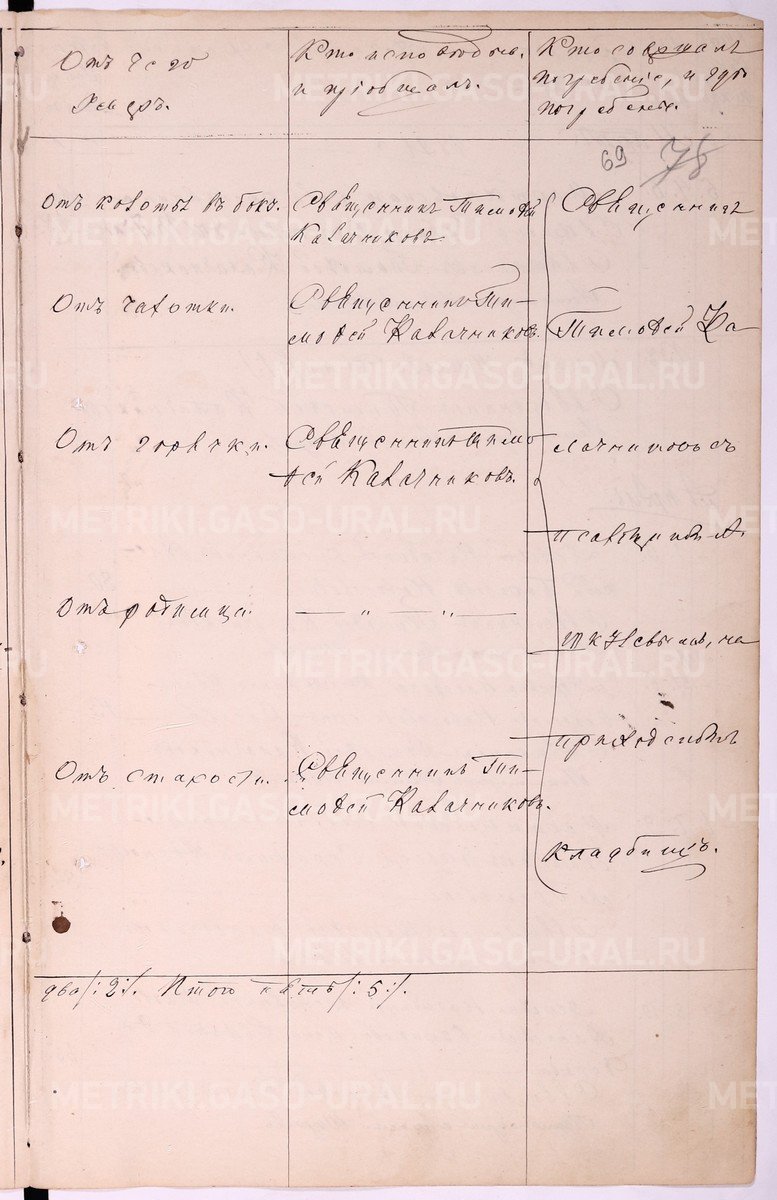 Отъ чего
умеръ.
Кто исповѣдыв.
и пріобщалъ.
Кто совершалъ
погребеніе, и гдѣ
погребены.
69 78
Отъ колотья въ боку.
Священникъ Тимофей
Калачниковъ
Отъ чахотки.
Священникъ Ти-
мофей Калачниковъ.
Отъ горячки.
Священникъ Тимо
фей Калачниковъ.
Отъ родимца.
— „ — „ —
Отъ старости.
Священникъ Ти-
мофей Калачниковъ.
Священникъ
Тимофей Ка
лачниковъ съ
псаломщикомъ А.
на
приходскомъ
кладбищѣ.
два /:2:/. Итого пять /:5:/.
METRIKI.GASO-URAL.RU